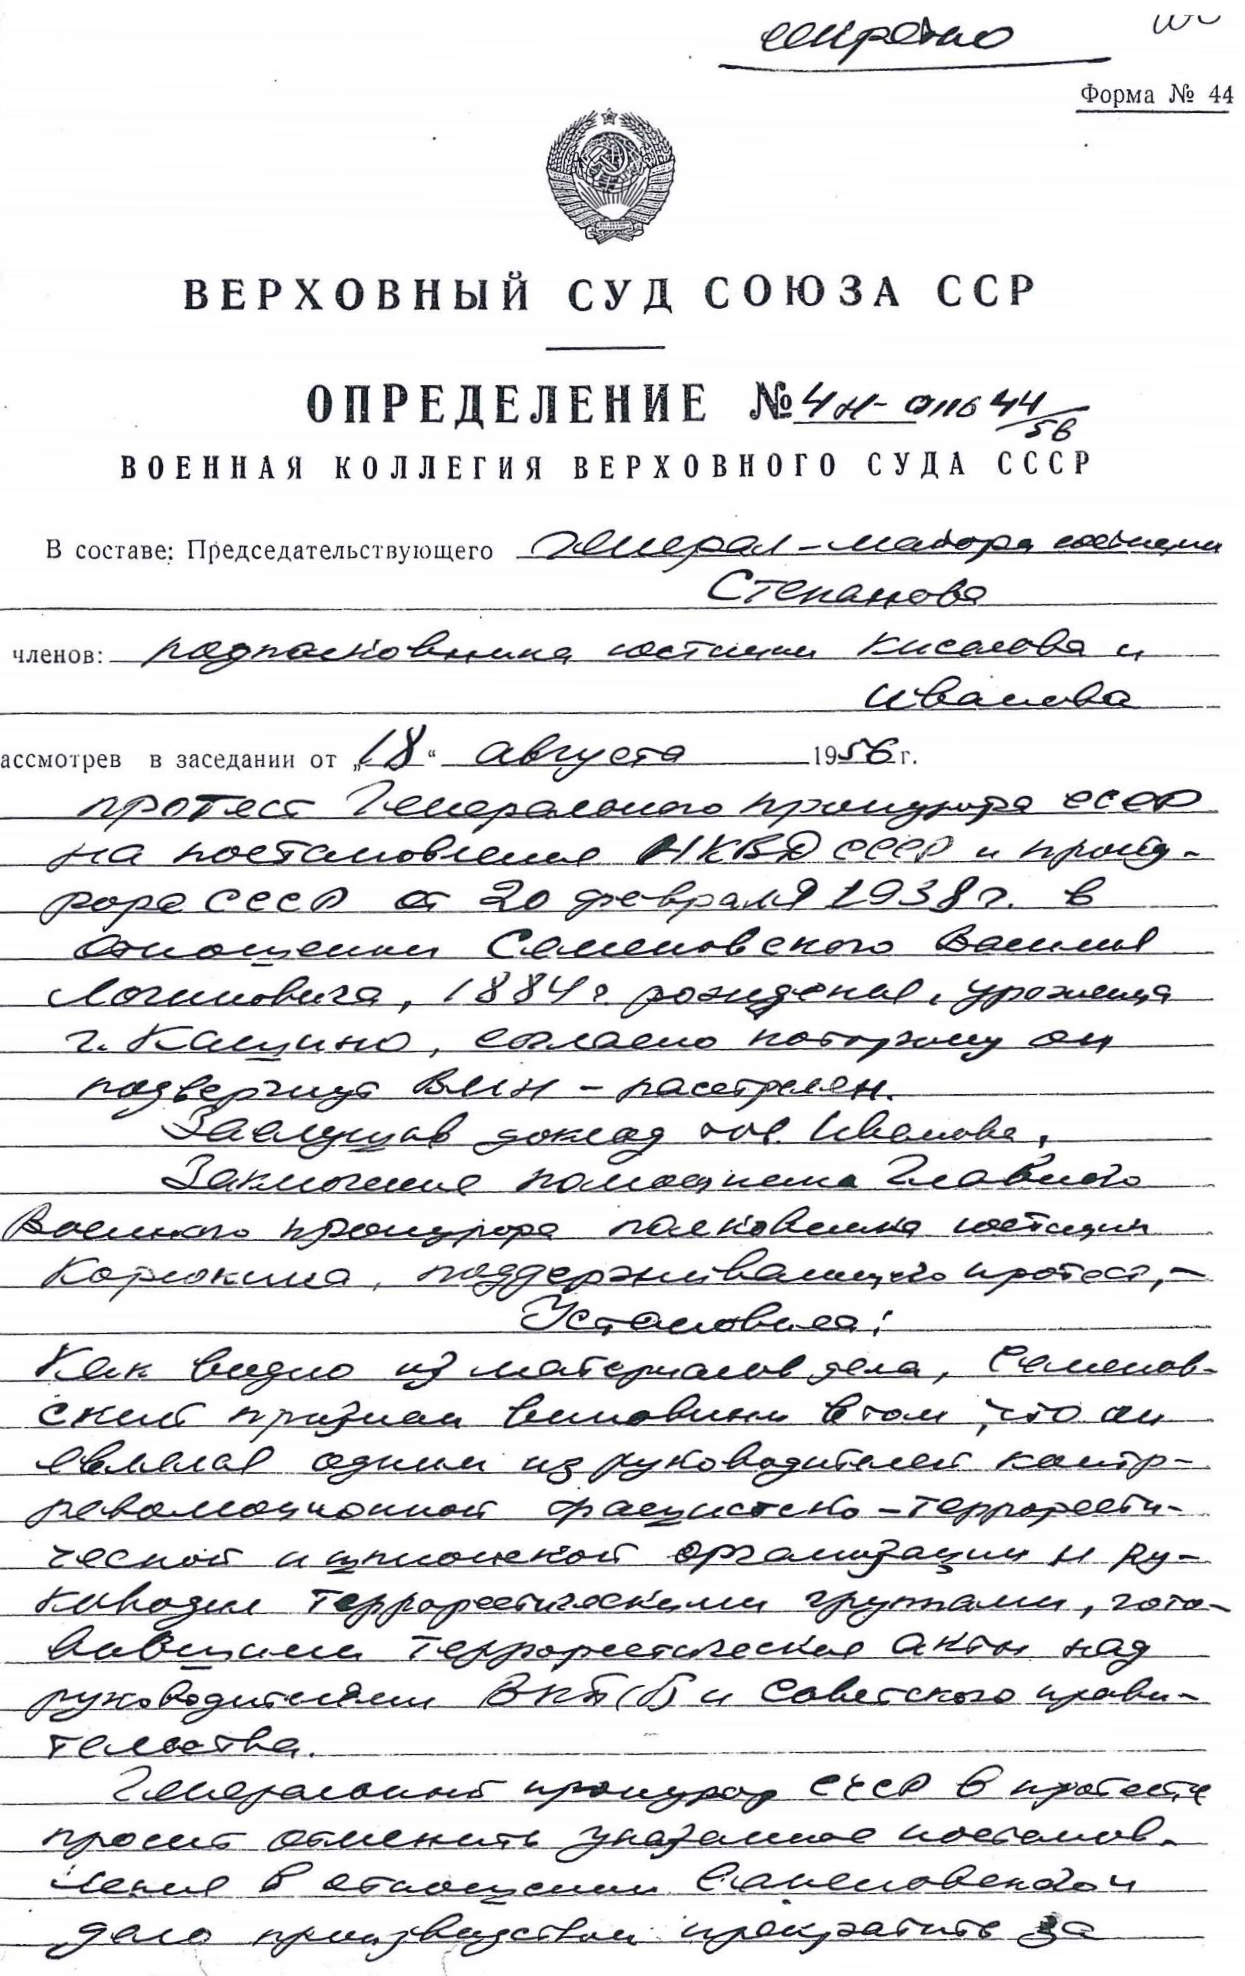 секретно
Форма № 44
ВЕРХОВНЫЙ СУД СОЮЗА ССР
ОПРЕДЕЛЕНИЕ № 4н-011644/56
ВОЕННАЯ КОЛЛЕГИЯ ВЕРХОВНОГО СУДА СССР
В составе: Председательствующего генерал-майора юстиции
Степанова
членов: подполковника юстиции Кисалова и
Иванова
ассмотрев в заседании от „18“ августа 1956 г.
протест Генерального прокурора СССР
на постановление НКВД СССР и проку-
рора СССР от 20 февраля 1938 г. в
отношении Семеновского Василия
Логиновича, 1884 г. рождения, уроженца
г. Кашино, согласно которому он
подвергнут ВМН – расстрелян.
Заслушав доклад тов. Иванова,
Заключение помощника Главного
Военного прокурора полковника юстиции
Корюкина, поддерживавшего протест, –
Установила:
Как видно из материалов дела, Семенов-
ский признан виновным в том, что он
являлся одним из руководителей контр-
революционной фашистско-террористи-
ческой и шпионской организации и ру-
ководил террористическими группами, гото-
вившими террористические акты над
руководителями ВКП(б) и Советского прави-
тельства.
Генеральный прокурор СССР в протесте
просит отменить указанное постанов-
ление в отношении Семеновского и
дело производством прекратить за